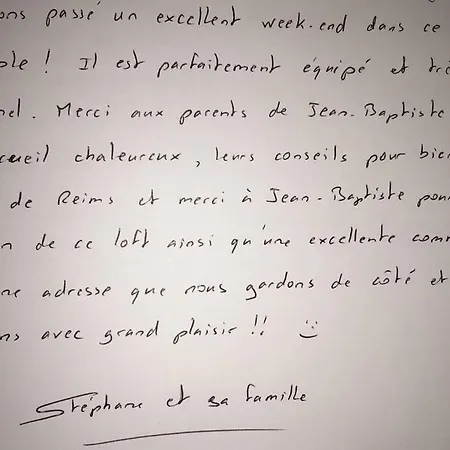 ons passé un excellent week-end dans ce
ble ! Il est parfaitement équipé et tr
nel. Merci aux parents de Jean-Baptiste
cueil chaleureux, leurs conseils pour bien
de Reims et merci à Jean-Baptiste pour
n de ce loft ainsi qu'une excellente com
ne adresse que nous gardons de côté et
ns avec grand plaisir !! :)
Stéphane et sa famille